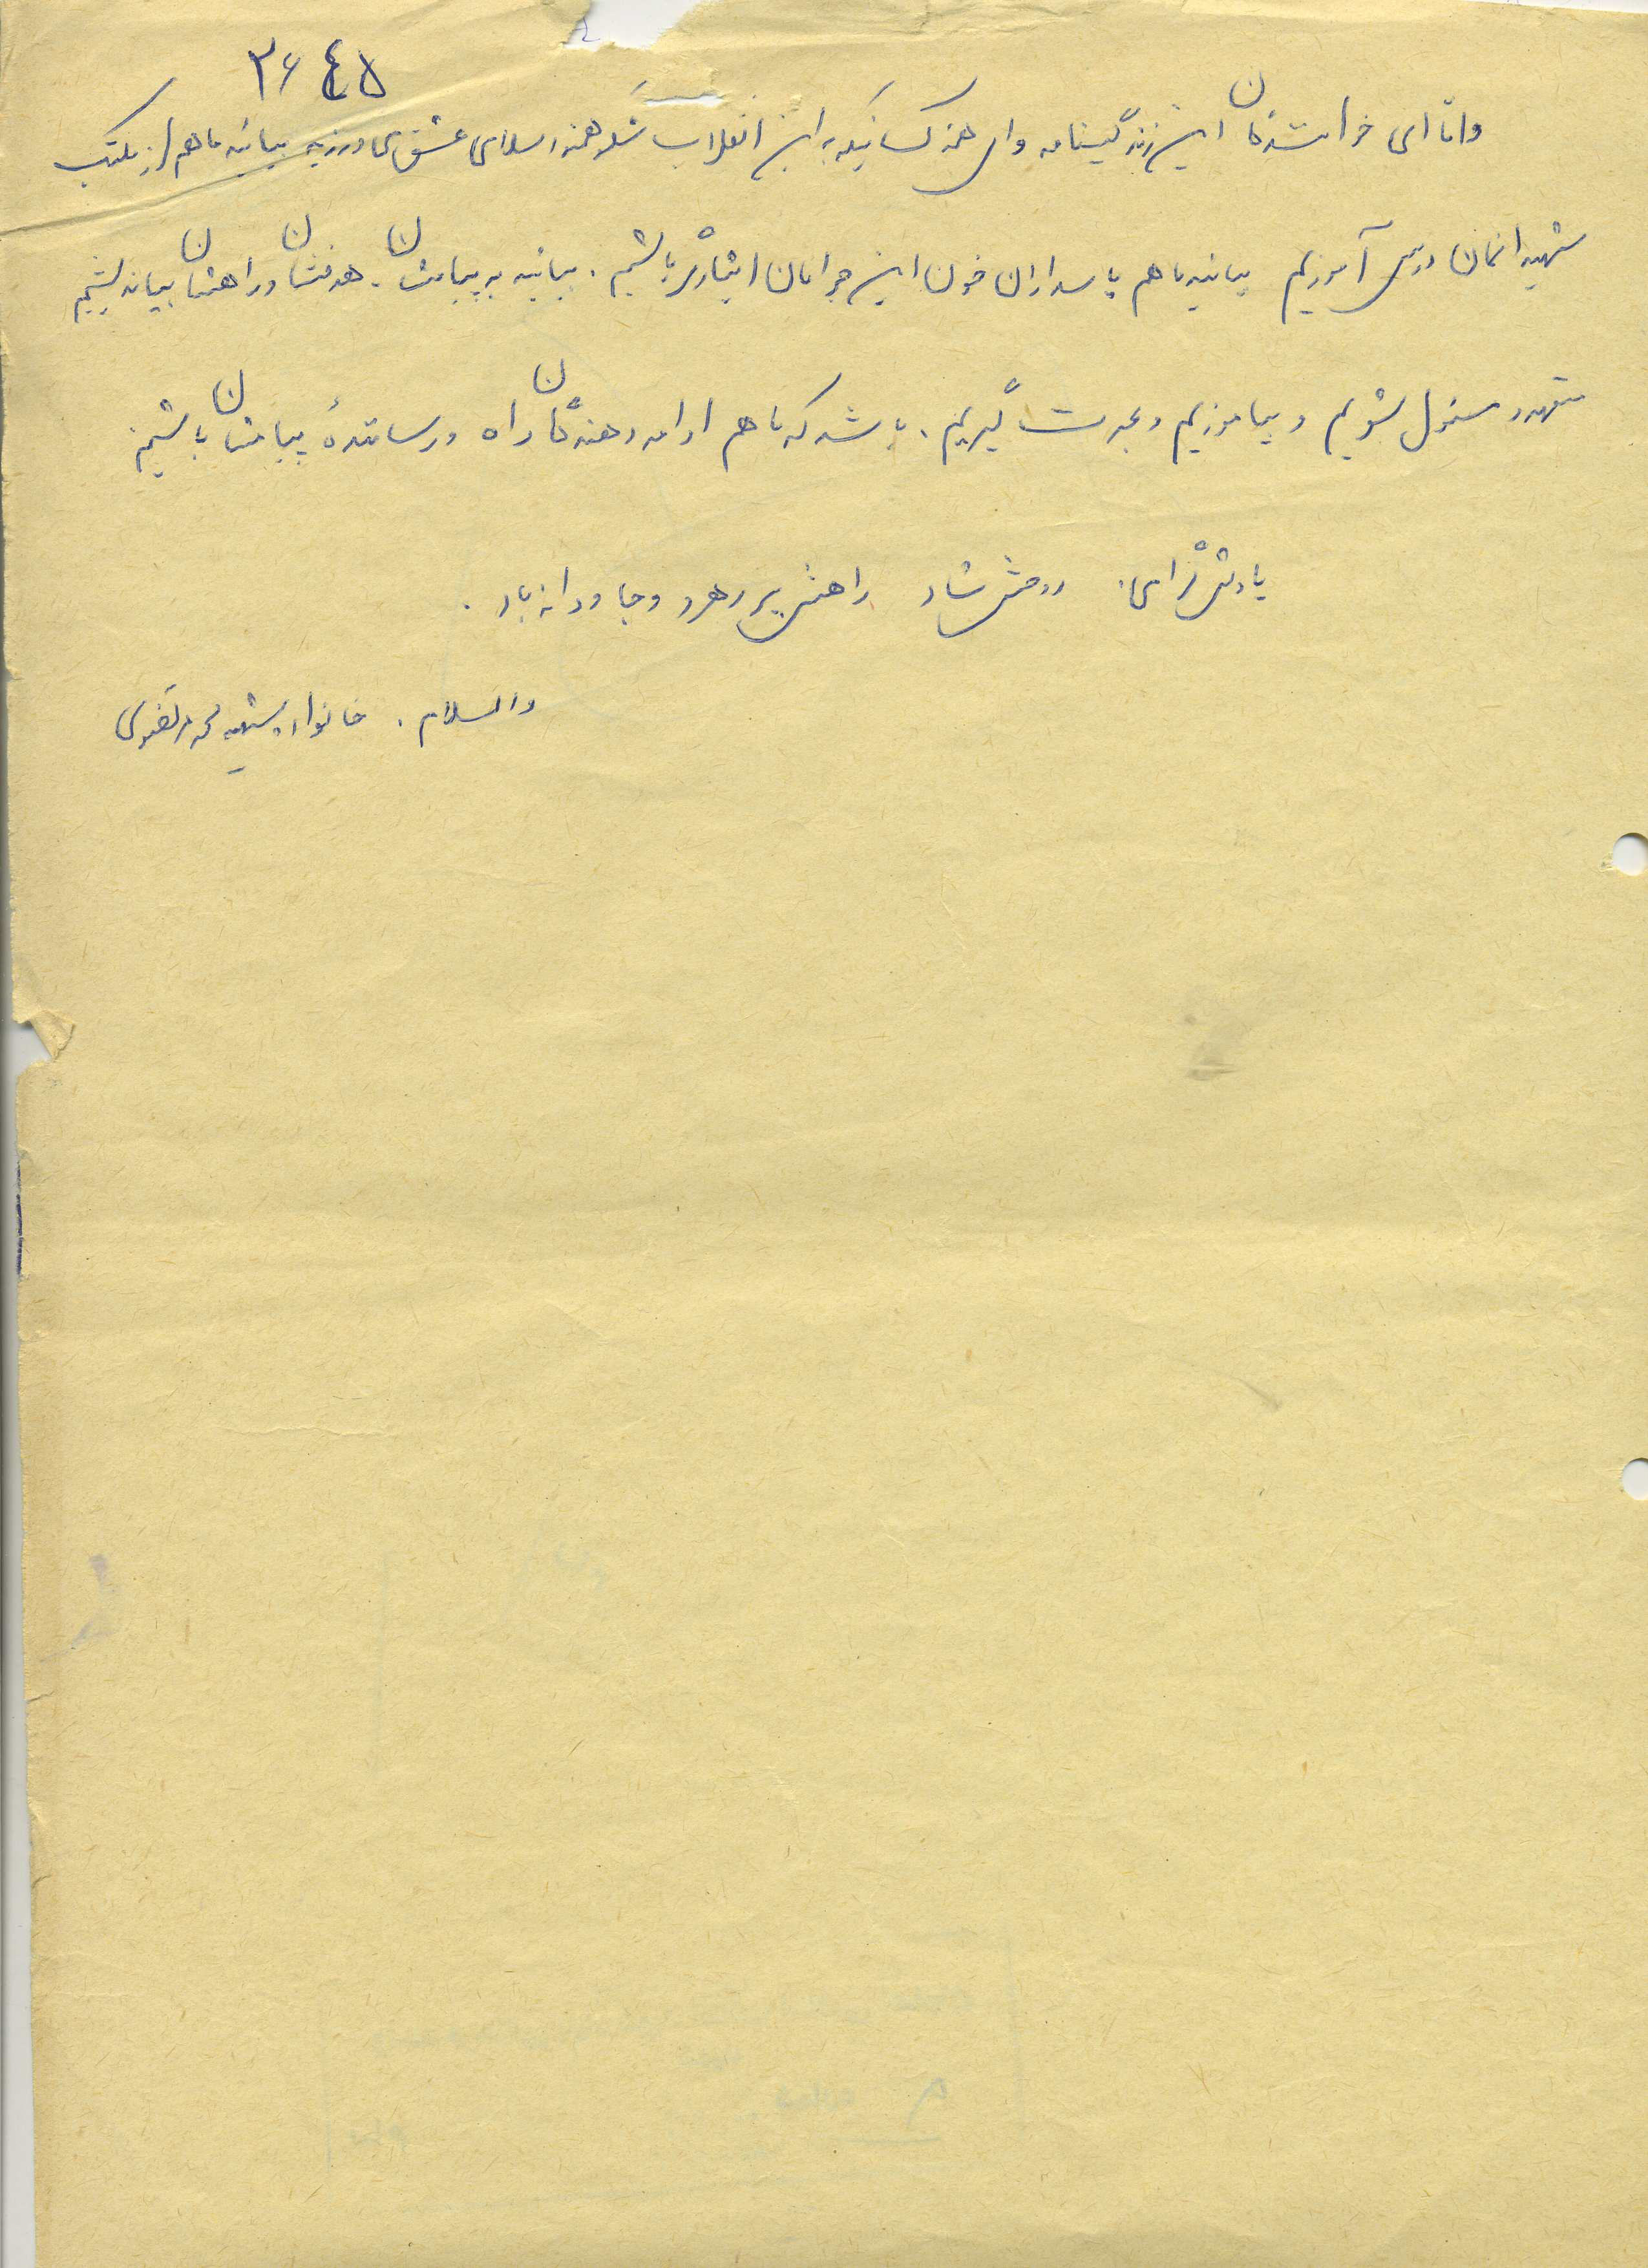 ۲۶۴۵
و اما ای خوانندگان این زندگینامه و ای همه کسانیکه به این انقلاب شکوهمند اسلامی عشق می ورزید بیائید ما هم از مکتب
شهیدانمان درس آموزیم بیائید ما هم پاسداران خون این جوانان ایثارگر باشیم. بیائید به پیامشان. هدفشان و راهشان بیاندیشیم
متعهد و مسئول شویم و بیاموزیم و عبرت گیریم. باشد که ما هم ادامه دهندگان راه و رسانندهٔ پیامشان باشیم
یادش گرامی. روحش شاد راهش پر رهرو و جاودانه باد.
والسلام. خانواده شهید